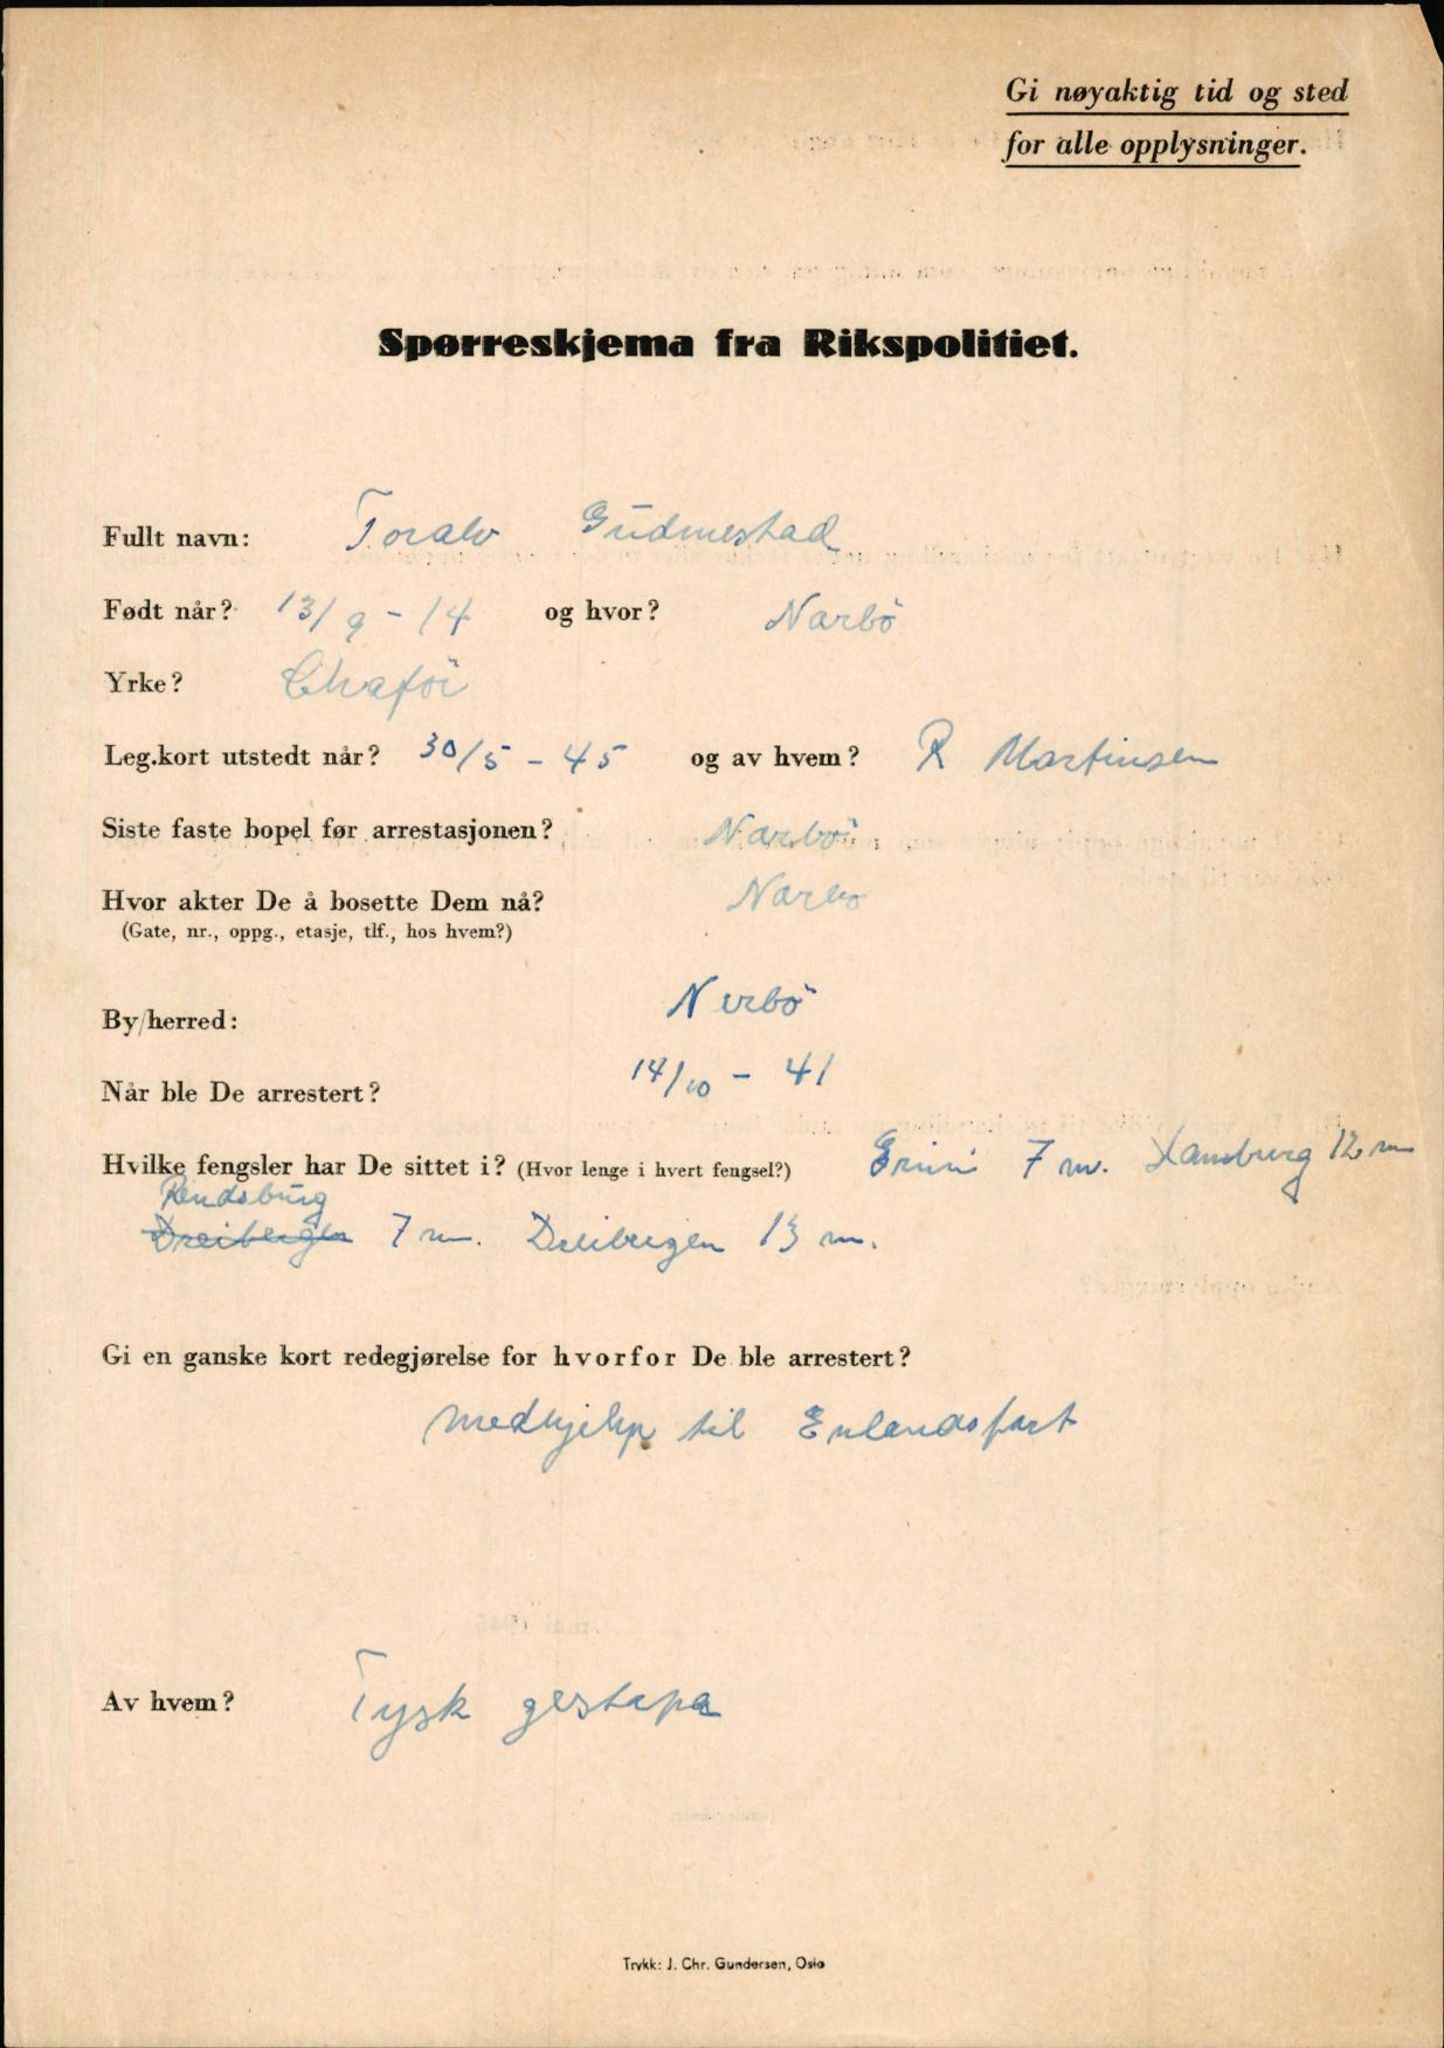 Gi nøyaktig tid og sted
for alle opplysninger.
Spørreskjema fra Rikspolitiet.
Fullt navn: Toralv Gudmestad
Født når? 13/9 - 14 og hvor? Narbö
Yrke? Chaför
Leg.kort utstedt når? 30/5 - 45 og av hvem? R Martinsen
Siste faste bopel før arrestasjonen? Narbö
Hvor akter De å bosette Dem nå? Narbo
(Gate, nr., oppg., etasje, tlf., hos hvem?)
By/herred: Nerbö
Når ble De arrestert? 14/10 - 41
Hvilke fengsler har De sittet i? (Hvor lenge i hvert fengsel?) Grini 7 m. Hamburg 12 m
Rendsburg
Dreibergen 7 m. Dreibergen 13 m.
Gi en ganske kort redegjørelse for hvorfor De ble arrestert?
Medhjelp til Enlandsfart
Av hvem? Tysk gestapo
Trykk: J. Chr. Gundersen, Oslo